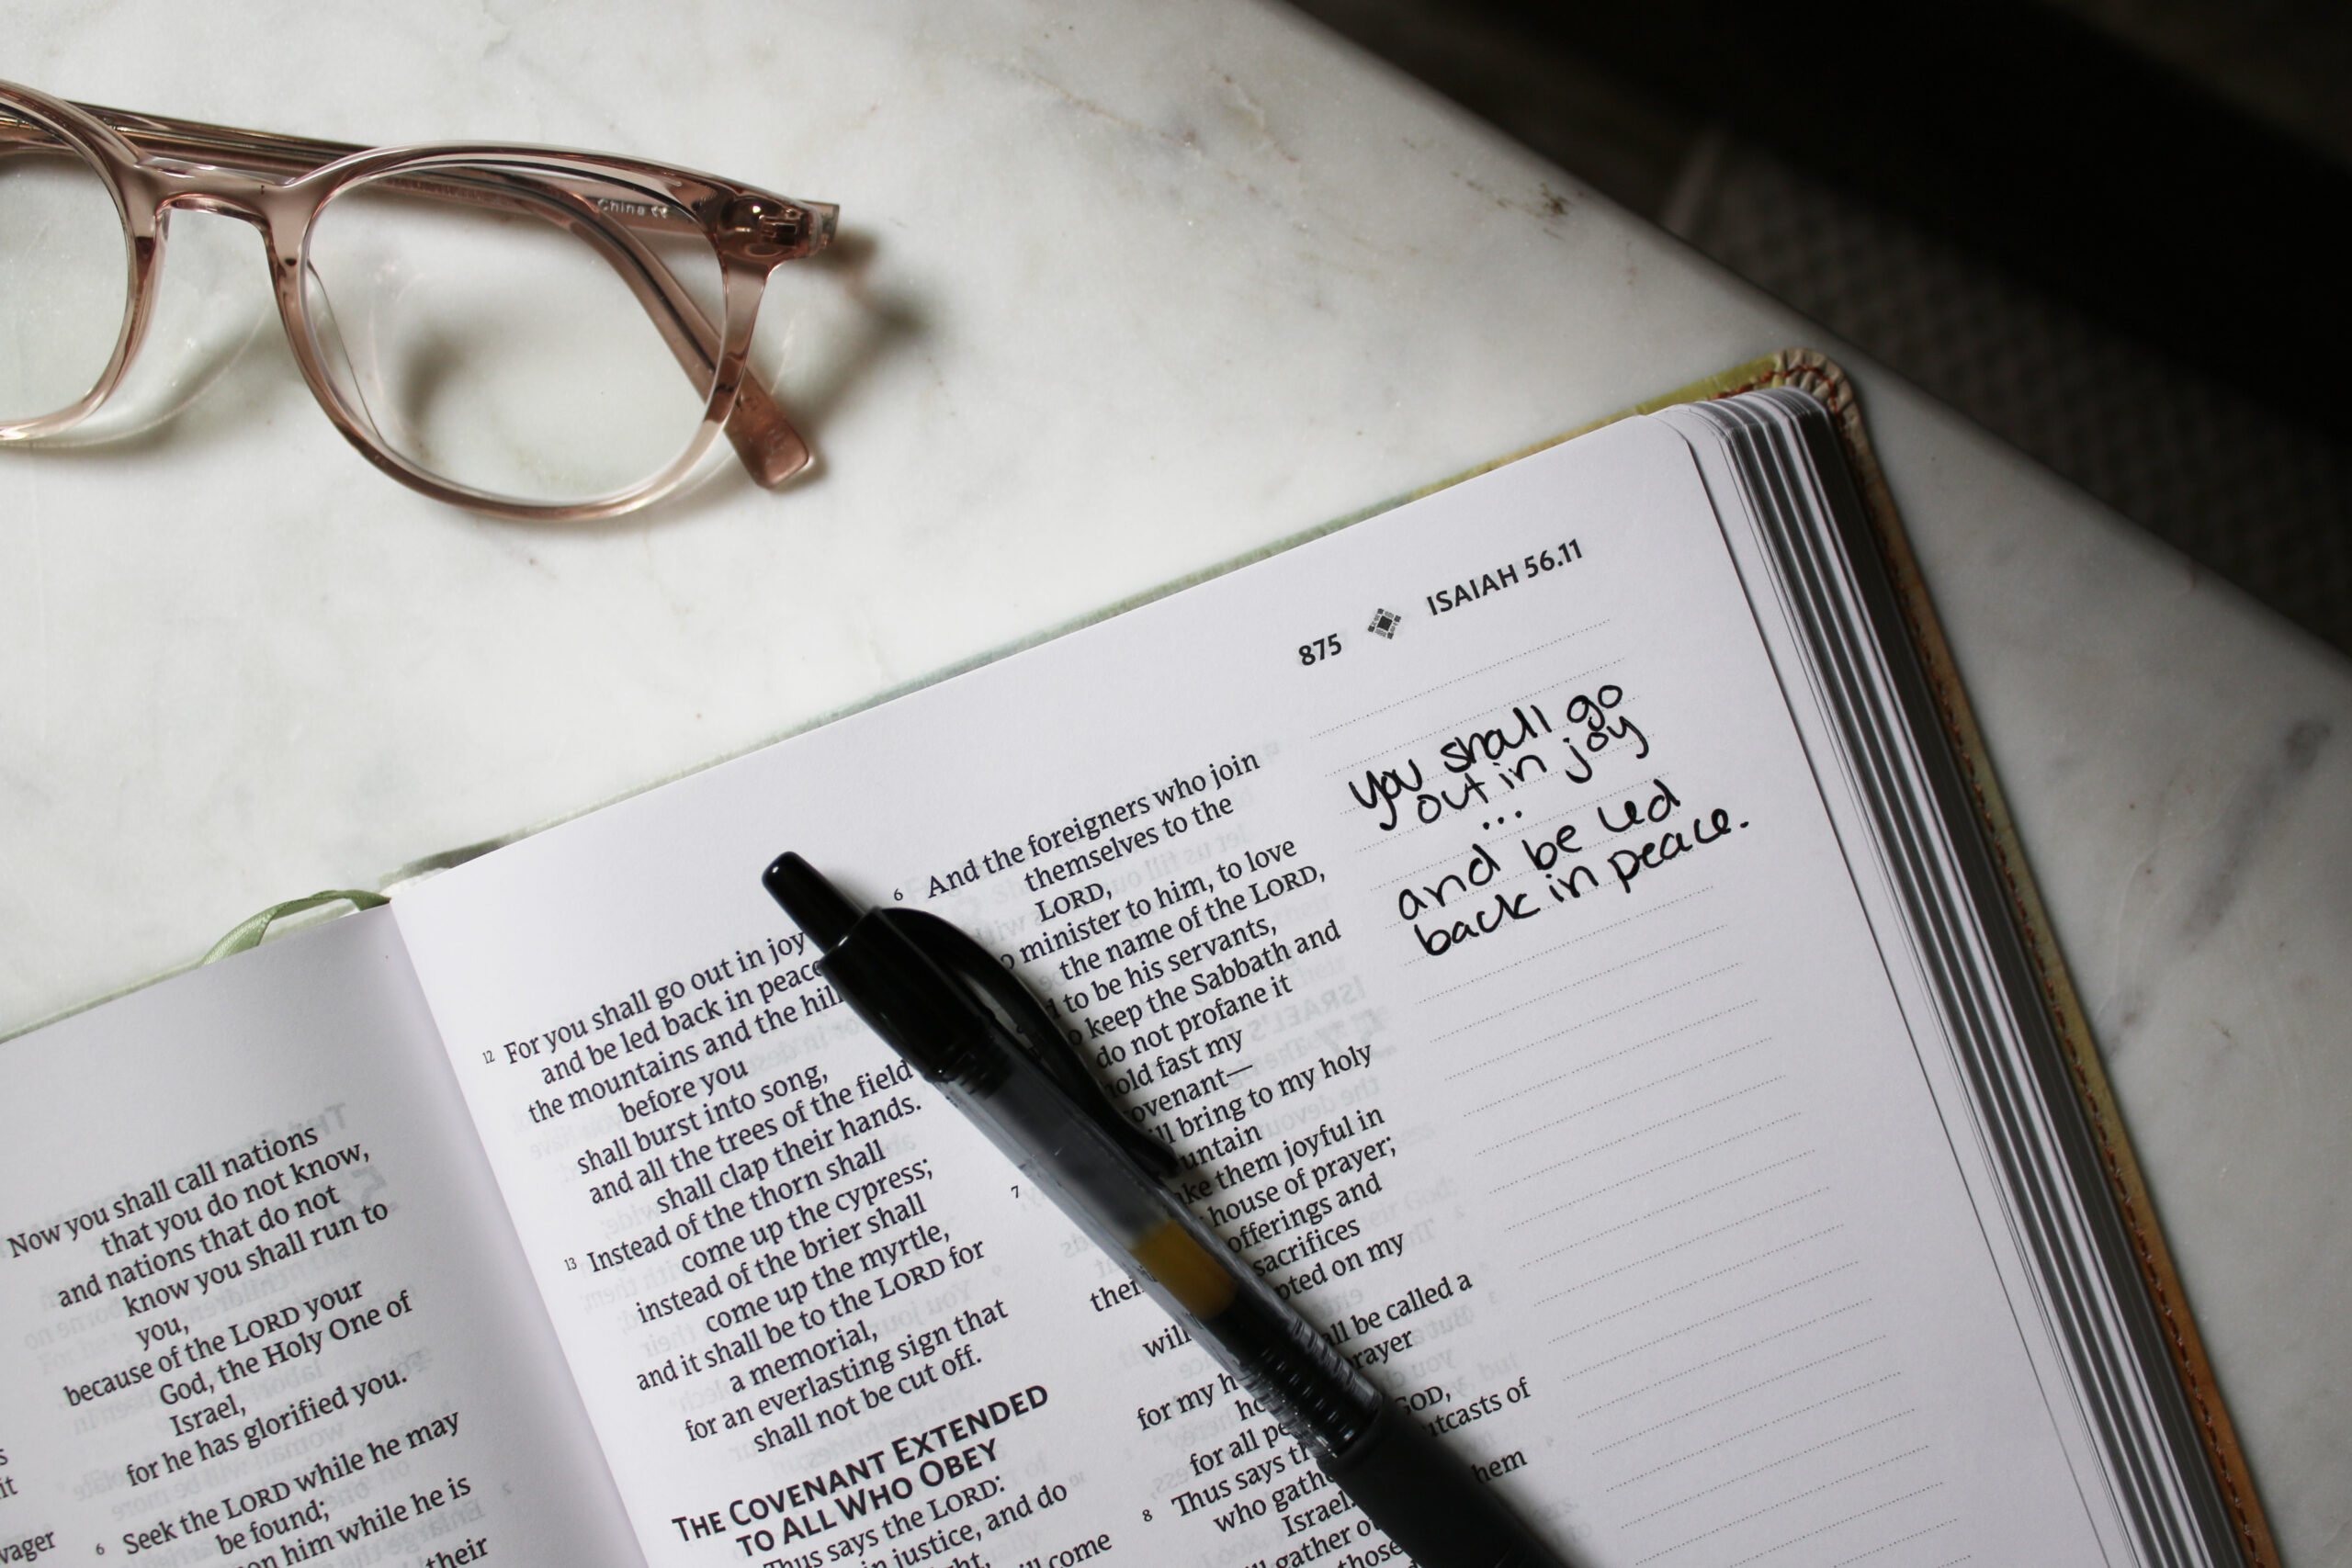 China CE
875 ISAIAH 56.11
you shall go
out in joy
...
and be led
back in peace.
Now you shall call nations
that you do not know,
and nations that do not
know you shall run to
you,
because of the LORD your
God, the Holy One of
Israel,
for he has glorified you.
6 Seek the LORD while he may
be found;
him while he is
their
12 For you shall go out in joy
and be led back in peace
the mountains and the hill
before you
shall burst into song,
and all the trees of the field
shall clap their hands.
13 Instead of the thorn shall
come up the cypress;
instead of the brier shall
come up the myrtle,
and it shall be to the LORD for
a memorial,
for an everlasting sign that
shall not be cut off.
THE COVENANT EXTENDED
TO ALL WHO OBEY
Thus says the LORD:
in justice, and do
come
6 And the foreigners who join
themselves to the
LORD,
minister to him, to love
the name of the LORD,
to be his servants,
keep the Sabbath and
do not profane it
hold fast my
covenant—
bring to my holy
7
them joyful in
house of prayer;
offerings and
sacrifices
on my
will
be called a
for my
for all
8 Thus says
GOD,
who
of
Israel
gather
those